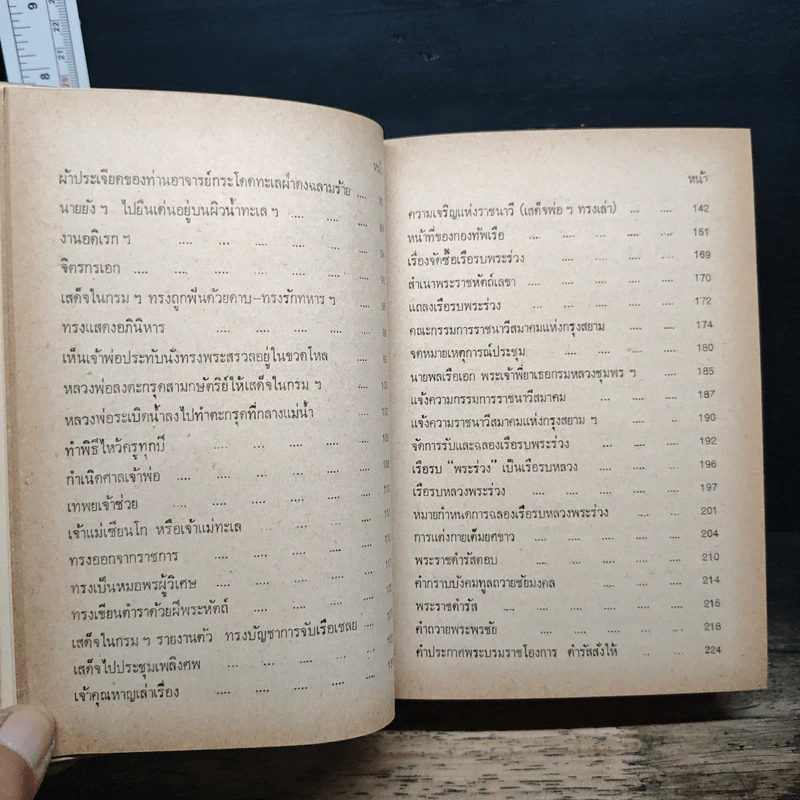 หน้า
ผ้าประเจียดของท่านอาจารย์กระโดดทะเลฝ่าดงฉลามร้าย ....
นายยัง ฯ ไปยืนเด่นอยู่บนผิวน้ำทะเล ฯ .... ....
งานอดิเรก ฯ .... .... .... ....
จิตรกรเอก .... .... .... .... ....
เสด็จในกรม ฯ ทรงถูกฟันด้วยดาบ-ทรงรักทหาร ฯ
ทรงแสดงอภินิหาร .... .... ....
เห็นเจ้าพ่อประทับนั่งทรงพระสรวลอยู่ในขวดโหล
หลวงพ่อลงตะกรุดสามกษัตริย์ให้เสด็จในกรม ฯ
หลวงพ่อระเบิดน้ำลงไปทำตะกรุดที่กลางแม่น้ำ
ทำพิธีไหว้ครูทุกปี .... .... .... ....
กำเนิดศาลเจ้าพ่อ .... .... .... ....
เทพยเจ้าช่วย .... .... .... .... ....
เจ้าแม่เซียนโก หรือเจ้าแม่ทะเล .... ....
ทรงออกจากราชการ .... .... .... ....
ทรงเป็นหมอพรผู้วิเศษ .... .... ....
ทรงเขียนตำราด้วยฝีพระหัตถ์ .... .... ....
เสด็จในกรม ฯ รายงานตัว ทรงบัญชาการจับเรือเชลย ....
เสด็จไปประชุมเพลิงศพ ... .... .... ....
เจ้าคุณหาญเล่าเรื่อง .... .... .... ....
หน้า
ความเจริญแห่งราชนาวี (เสด็จพ่อ ฯ ทรงเล่า) ... .... 142
หน้าที่ของกองทัพเรือ .... .... .... .... 151
เรื่องจัดซื้อเรือรบพระร่วง .... .... .... 169
สำเนาพระราชหัตถ์เลขา .... .... .... .... 170
แถลงเรือรบพระร่วง .... .... .... .... 172
คณะกรรมการราชนาวีสมาคมแห่งกรุงสยาม .... .... 174
จดหมายเหตุการณ์ประชุม .... .... .... 180
นายพลเรือเอก พระเจ้าพี่ยาเธอกรมหลวงชุมพร ฯ .... 185
แจ้งความกรรมการราชนาวีสมาคม .... .... .... 187
แจ้งความราชนาวีสมาคมแห่งกรุงสยาม ฯ .... .... 190
จัดการรับและฉลองเรือรบพระร่วง .... .... .... 192
เรือรบ "พระร่วง" เป็นเรือรบหลวง .... .... .... 196
เรือรบหลวงพระร่วง .... .... .... .... 197
หมายกำหนดการฉลองเรือรบหลวงพระร่วง .... .... 201
การแต่งกายเต็มยศขาว .... .... .... .... 204
พระราชดำรัสตอบ .... .... .... .... 210
คำกราบบังคมทูลถวายชัยมงคล .... .... .... 214
พระราชดำรัส ... .... .... .... .... 215
คำถวายพระพรชัย .... .... .... .... 218
คำประกาศพระบรมราชโองการ ดำรัสสั่งให้ .. .... 224